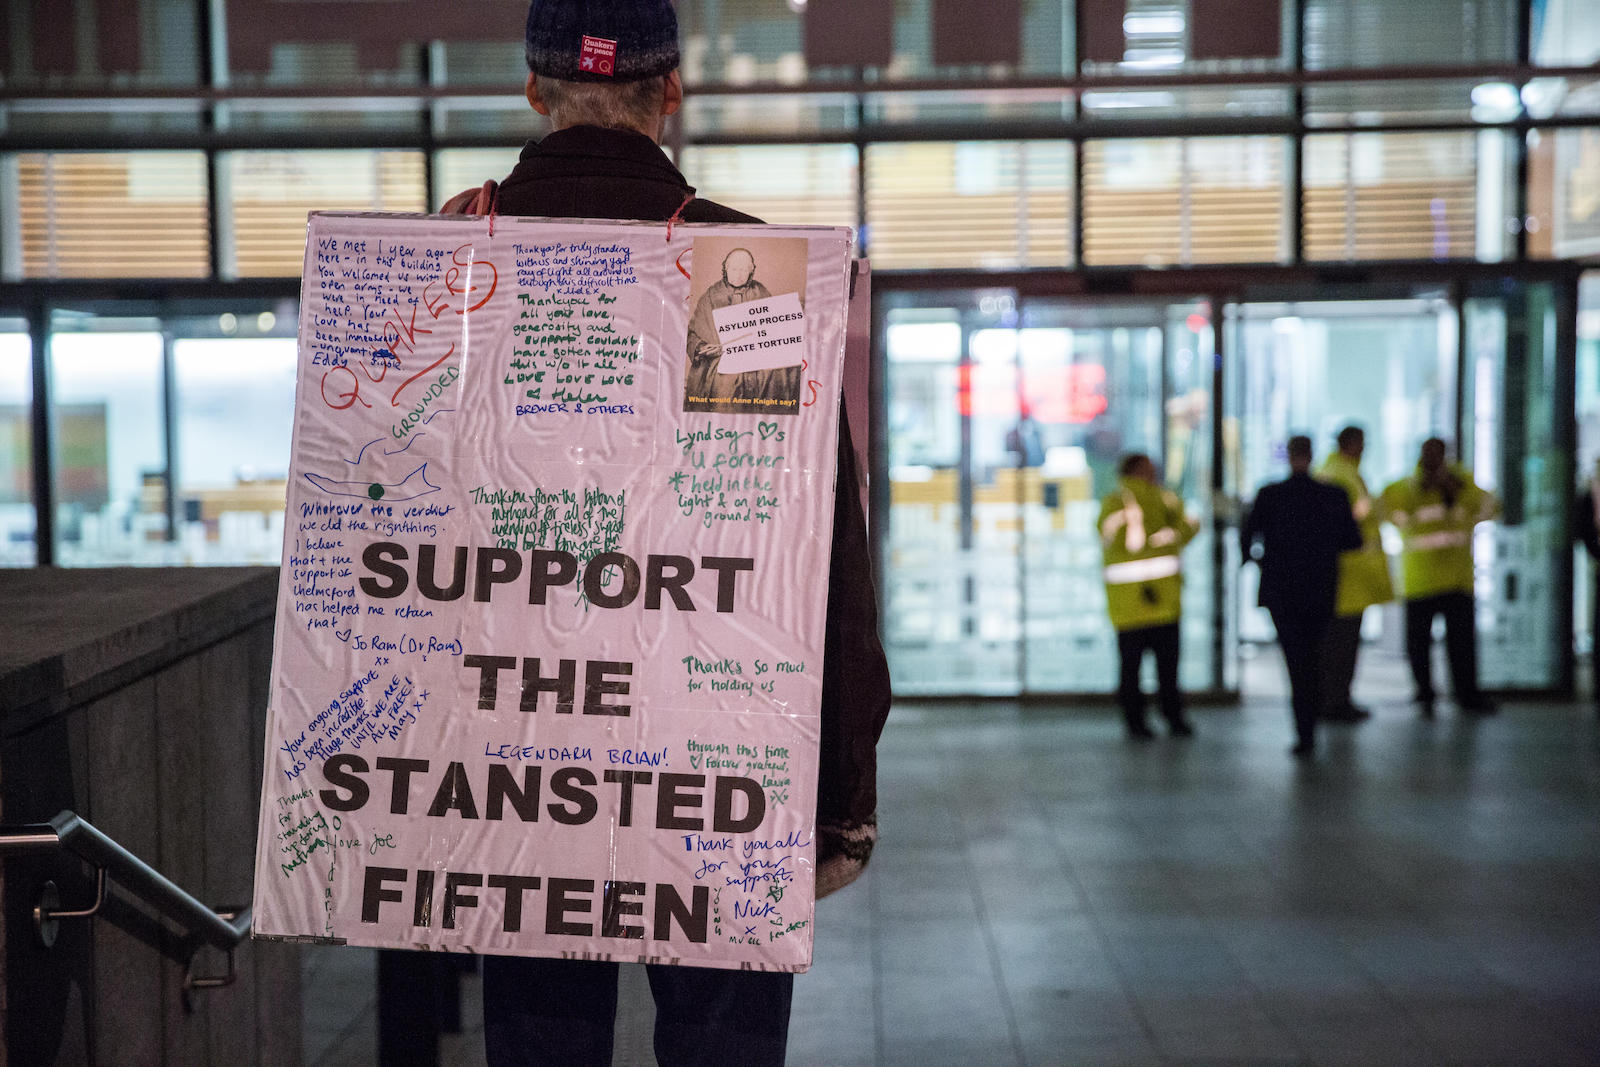 Quakers
for peace
Q
We met 1 year ago -
here - in this building
You welcomed us with
open arms - we
were in need of
help. Your
Love has
been Immeasurable
Eddy
QUAKERS
GROUNDED
Thankyou for truly standing
with us and shining your
ray of light all around us
through this difficult time
Thankyou for
all your love,
generosity and
support. couldn't
have gotten through
this w/o it all.
LOVE LOVE LOVE
Helen
BREWER & OTHERS
OUR
ASYLUM PROCESS
IS
STATE TORTURE
What would Anne Knight say?
Lyndsay ♡s
U forever
* held in the
light & on the
ground *
Whatever the verdict
we did the right thing.
I believe
that + the
support of
Chelmsford
has helped me retain
that
♡ Jo Ram (Dr Ram)
xx
Thankyou from the bottom of
my heart for all of the
SUPPORT
THE
STANSTED
FIFTEEN
Your ongoing support
has been incredible
Huge thanks.
UNTIL WE ARE
ALL FREE!
May x x
Thanks so much
for holding us
through this time
♡ Forever grateful,
Laura
LEGENDARY BRIAN!
Thanks
for
standing
up
love joe
Thank you all
for your
support.
Nick
x